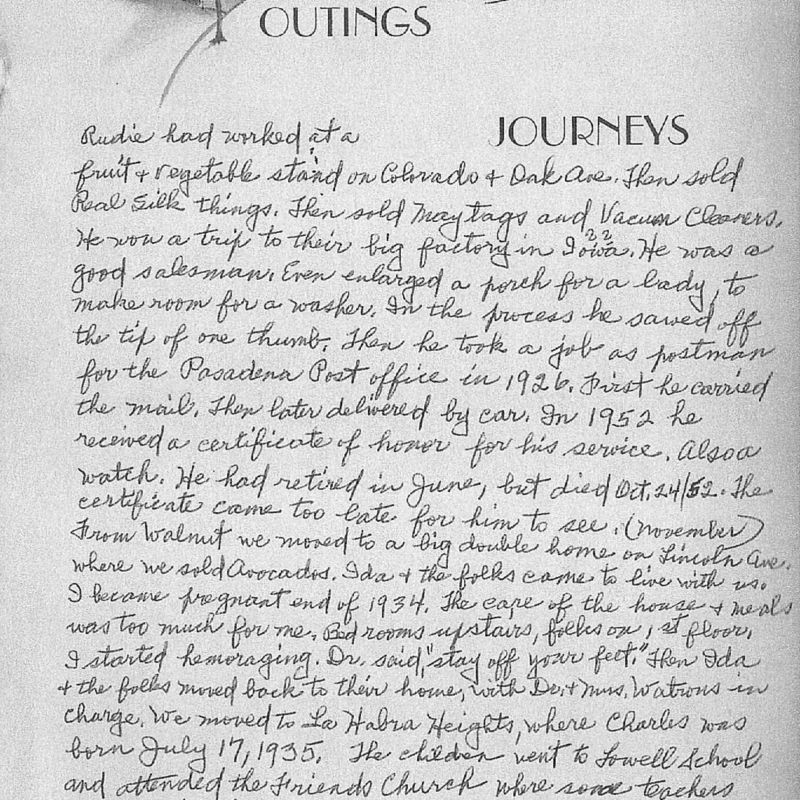 OUTINGS
JOURNEYS
Rudie had worked at a
fruit + vegetable stand on Colorado + Oak Ave. Then sold
Real Silk things. Then sold Maytags and Vacuum Cleaners.
He won a trip to their big factory in Iowa. ?? He was a
good salesman. Even enlarged a porch for a lady, to
make room for a washer. In the process he sawed off
the tip of one thumb. Then he took a job as postman
for the Pasadena Post office in 1926. First he carried
the mail. Then later delivered by car. In 1952 he
received a certificate of honor for his service. Also a
watch. He had retired in June, but died Oct. 24/52. The
certificate came too late for him to see. (November)
From Walnut we moved to a big double home on Lincoln Ave.
where we sold Avocados. Ida + the folks came to live with us.
I became pregnant end of 1934. The care of the house + meals
was too much for me. Bed rooms upstairs, folks on 1st floor.
I started hemoraging. Dr. said, "stay off your feet." Then Ida
+ the folks moved back to their home, with Dr. + Mrs. Watrous in
charge. We moved to La Habra Heights, where Charles was
born July 17, 1935. The children went to Lowell School
and attended the Friends Church where some teachers